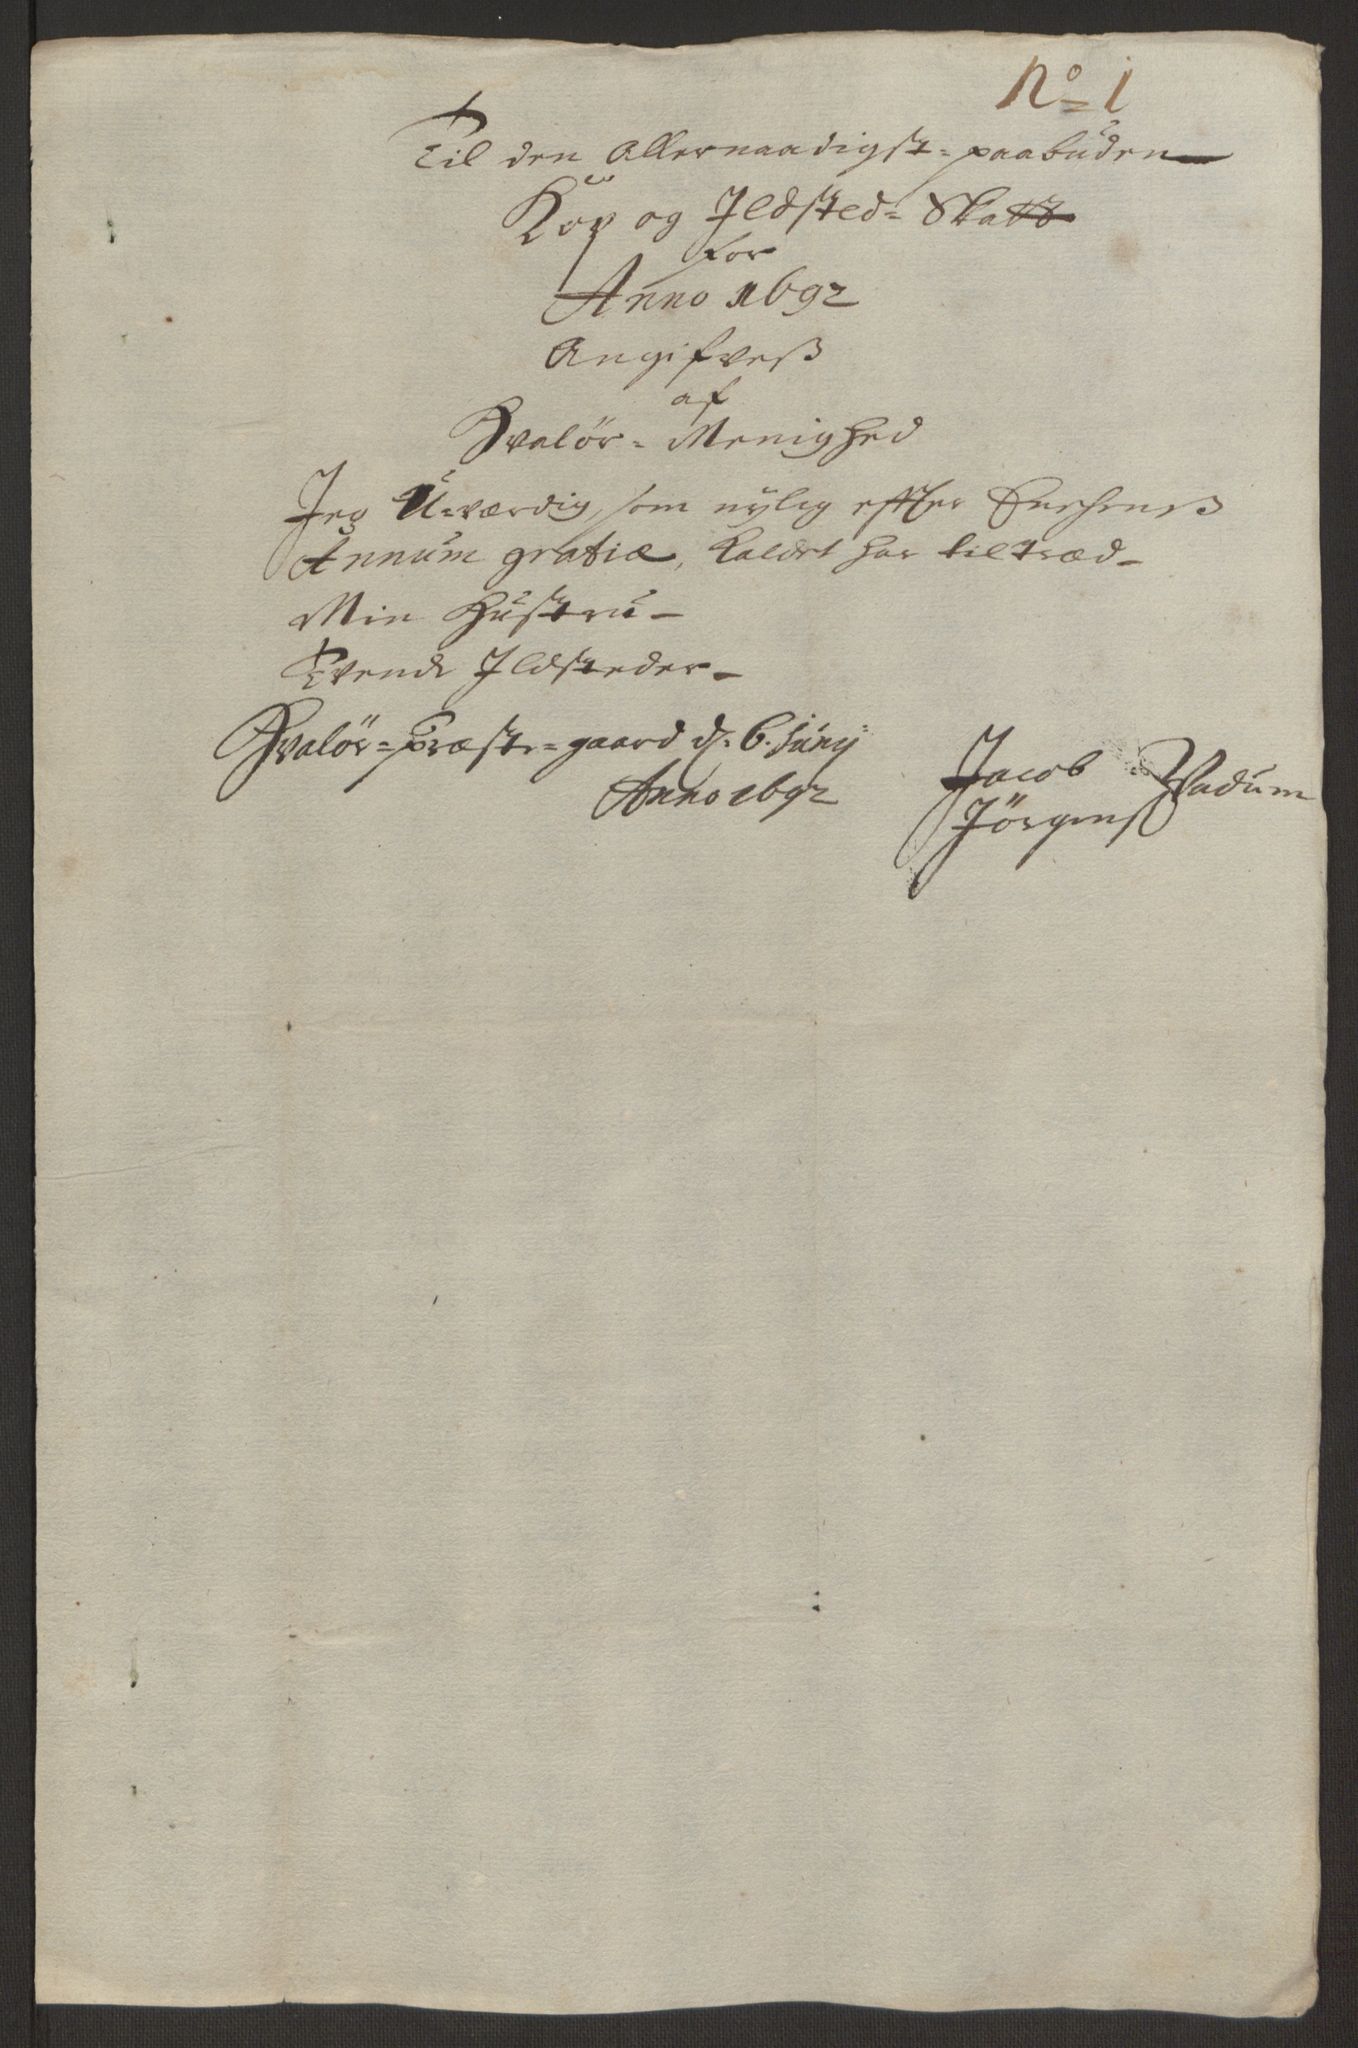 No = 1
Til den Allernaadigst = paabuden
Kop og Ildsted = Skatt
for
Anno 1692
Angifves
af
Hvalör = Menighed
Jeg U=værdig, som nylig effter Enchens
Annum gratiæ, Kaldet har tiltræd -
Min Hustru -
Tvende Ildsteder -
Hvalör = Præste = gaard d. 6. Junij
Anno 1692
Jacob Wadum
Jörgens